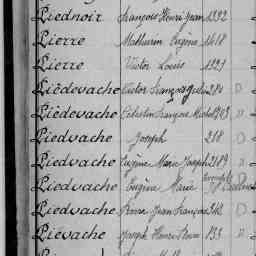 Piednoir François Henri Jean 1392
Pierre Mathurin Eugène 1418
Pierre Victor Louis 1329
Piédevache Victor François Jules 284
Piédevache Célestin François Michel 1909 D
Piedvache Joseph 218 D
Piedvache Eugène Marie Joseph 2189 D
Piedvache Eugène Marie
Piedvache Pierre Jean François 262 D
Piévache Joseph Henri Pierre 133